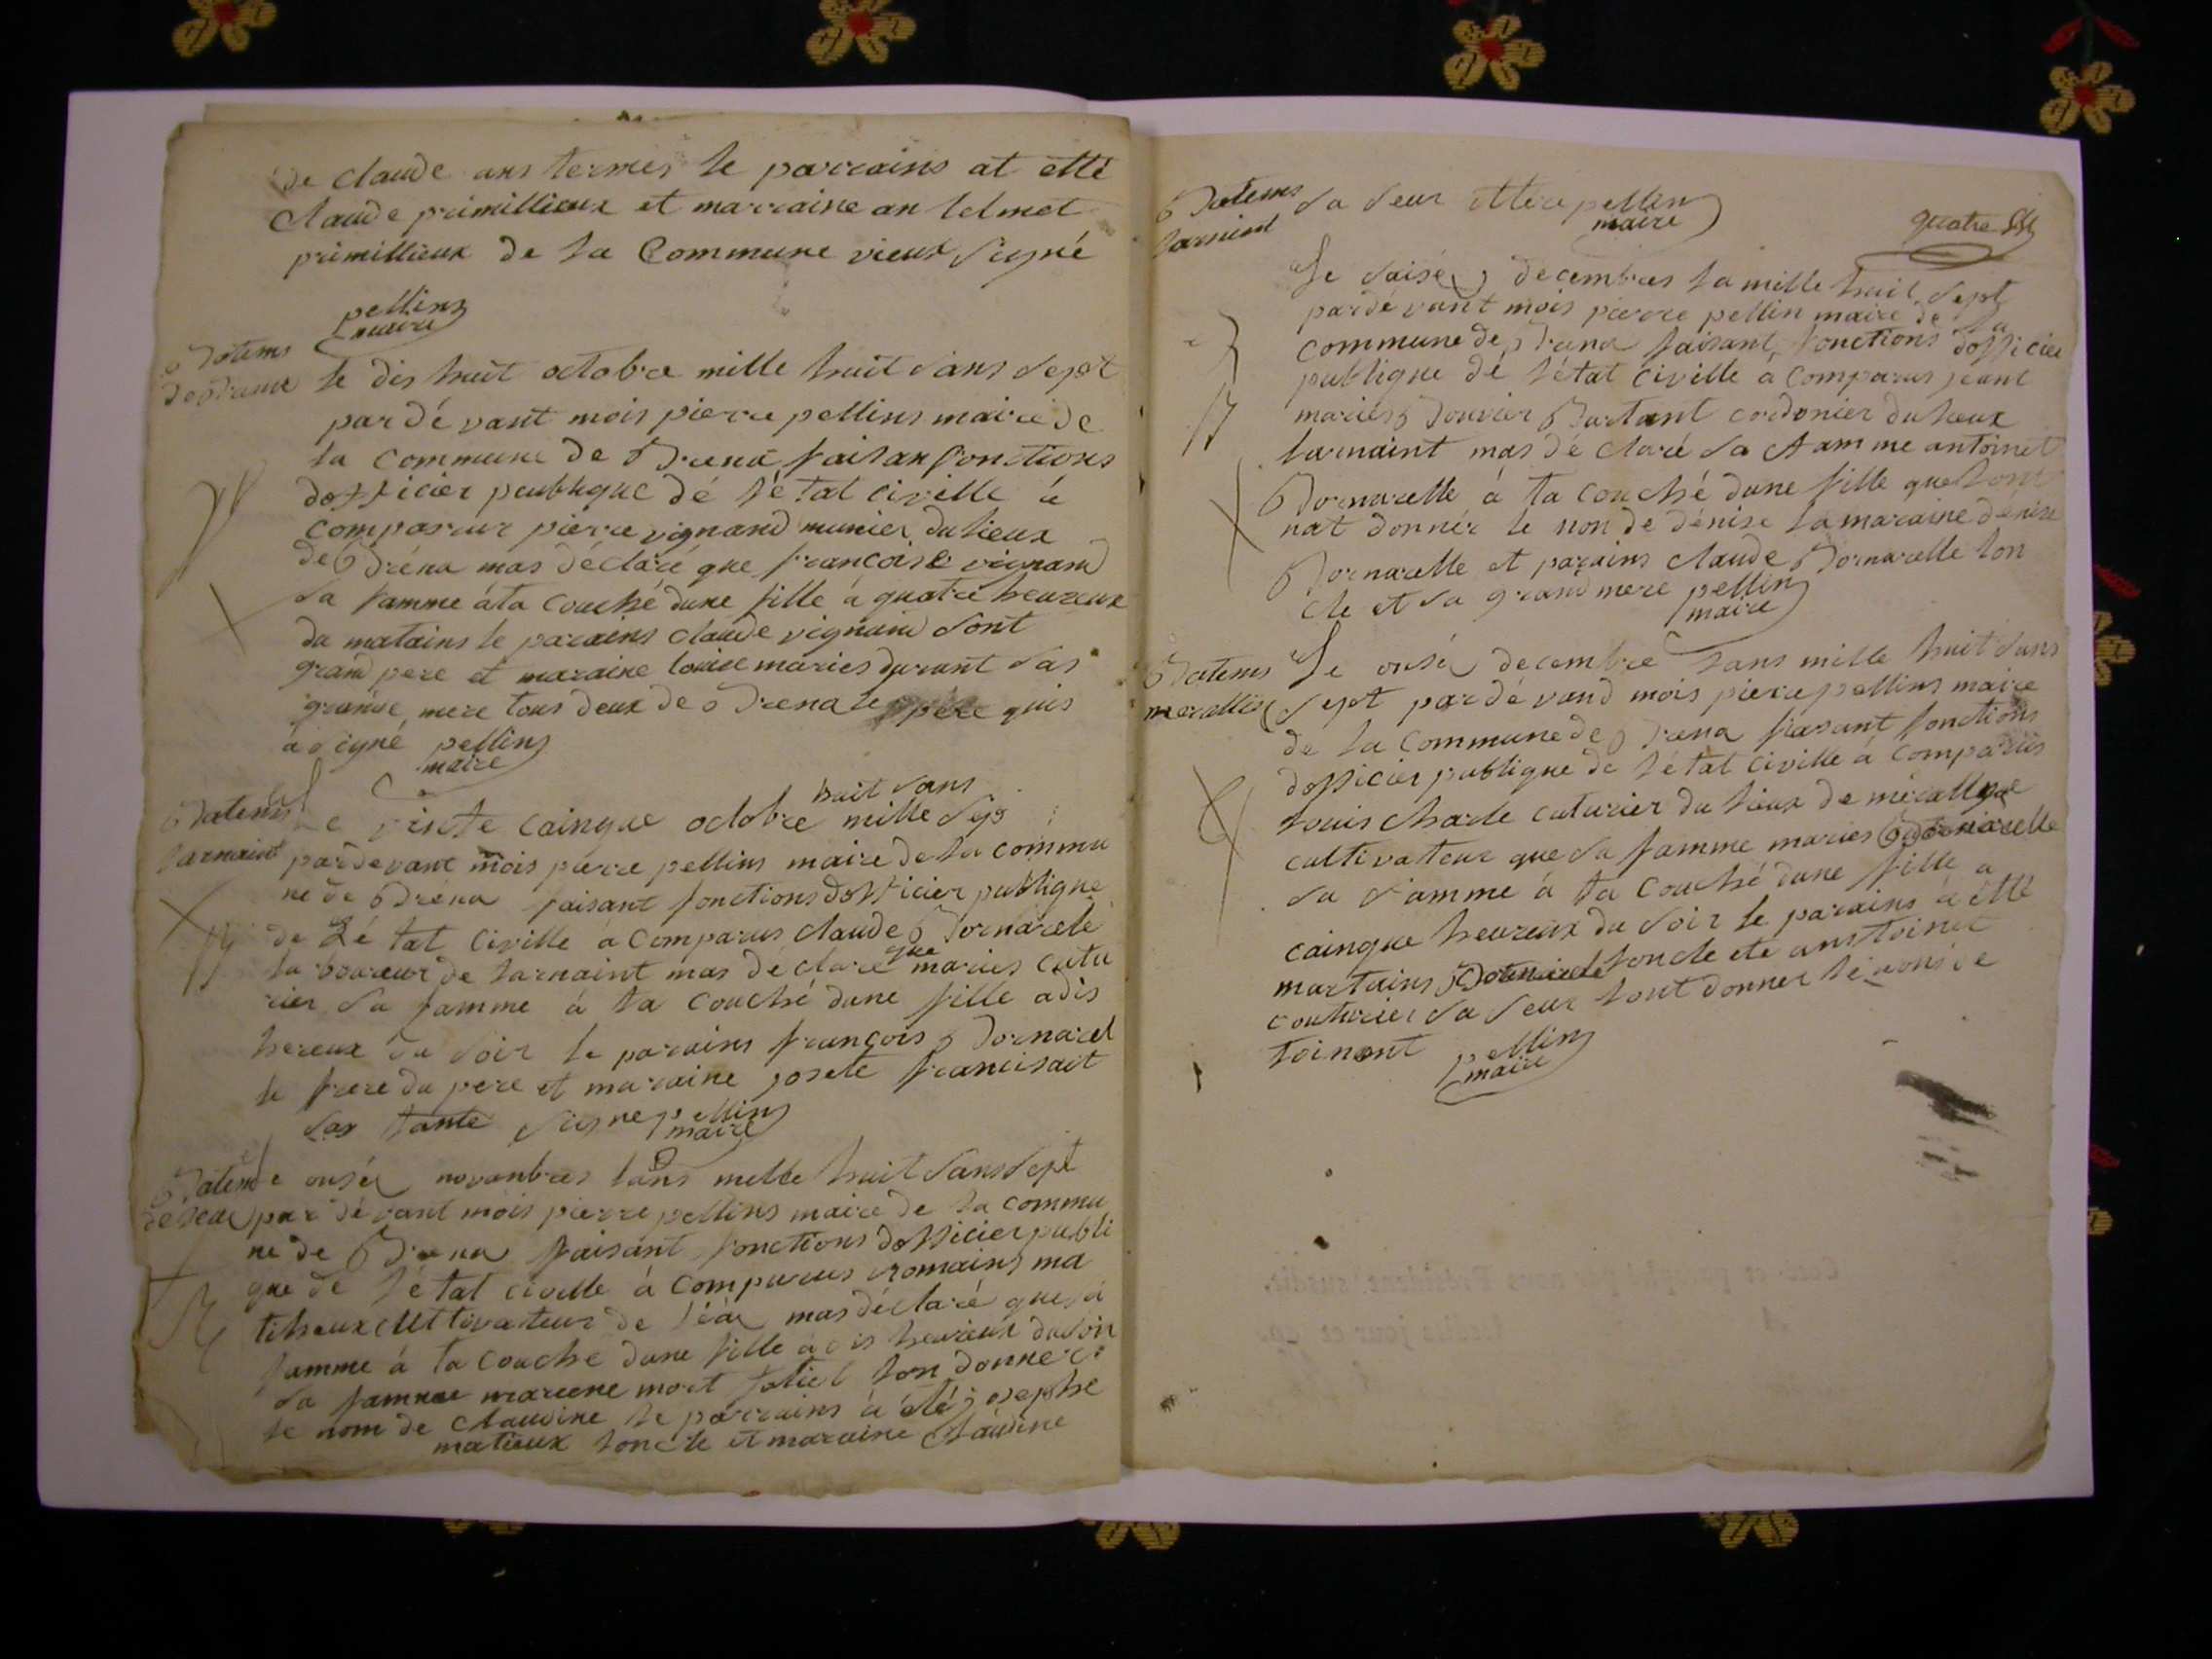 de claude ans termes le parrains at etté
Claude primillieux et marraine an
primillieux de la Commune vieux signé
pellins
maire
Batems
de Brena
le dis huit octobre mille huit sans sept
par dé vant mois pierre pellins maire de
la commune de Brena faisan fonctions
dofficier peublique dé l'état civille à
comparur pierre vignand munier du lieux
de Bréna mas déclaré que francoise vignand
sa famme à ta couché dune fille à quatre heureux
du matains le parains claude vignand sont
grand pere et maraine louise maries durant sas
grande mere tous deux de Brena le père quis
à signé pellins
maire
Batems
larnaint
huit sans
Le vinte cainque octobre mille sep
par de vant mois pierre pellins maire de la commu
ne de Bréna faisant fonctions dofficier publique
de Lé tat Civille à Comparus claude Bornarele
la boureur de larnaint mas dé claré que maries cutu
rier sa famme à ta couché dune fille a dis
hereux du soir le parains françois Bornarel
le frere du pere et maraine josete francisait
sas tante signe pellins
maire
Batems
Le onsé novanbres lans mille huit sans sept
par dé vant mois pierre pellins maire de la commu
ne de Brena faisant fonctions dofficier publi
que de l'état civille à comparus romains ma
tiheux culltivateur de mas déclaré que sa
famme à ta couche dune fille à dis heureux du soir
sa famme mariene mort l'on donner
le nom de Claudine le parrains à été josephe
matieux loncle et maraine Claudine
Batems
larnient
sa seur pellins
maire
quatre
Le saisé decembres la mille huit sept
par dé vant mois pierre pellin maire de la
commune de Brena faisant fonctions dofficier
publique dé l'état civille a comparus jeant
maries Bouvier Burtant cordonier du lieux
larnaint mas dé claré sa famme antoinet
Bornarelle à ta couché dune fille que lont
nat donnér le non de dénise la maraine denise
Bornarelle et parains claude Bornarelle lon
cle et sa grand mere pellins
maire
Batems
Le onsé decembre lans mille huit sans
sept par dé vand mois pierre pellins maire
de la Commune de Brena faisant fonctions
dofficier publique de l'état civille à comparus
louis charle cuturier du lieux de
cultivateur que sa famme maries Bornarelle
sa famme à ta couché dune fille a
cainque heureux du soir le parains à étté
martains Bornarele loncle ete anstoinet
couturier sa seur lont donner lé nons de
toinont pellins
maire